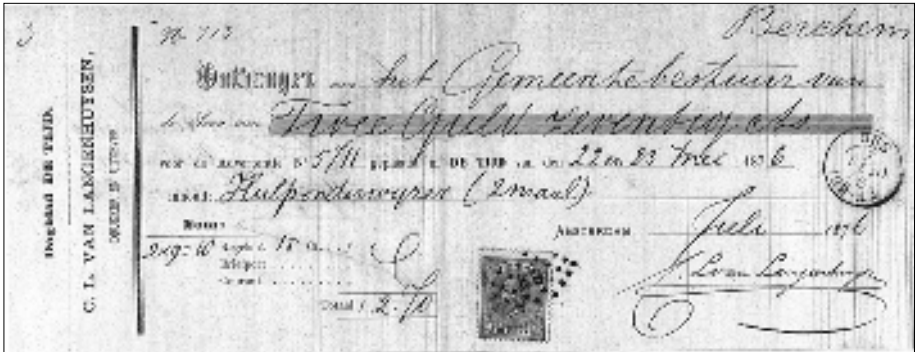 Dagblad DE TIJD.
C. L. VAN LANGENHUYSEN,
No 713
Berchem
Ontvangen van het Gemeentebestuur van
de Som van Twee Guld. zeventig cts
voor de advertentie No 5/11 geplaatst in DE TIJD van den 22 en 23 Mei 1876
inhoud: Hulponderwyzer (2 maal)
AMSTERDAM Juli 1876
2x9=18 Regels à 15 Ct.
Totaal f 2.70
C. L. van Langenhuysen